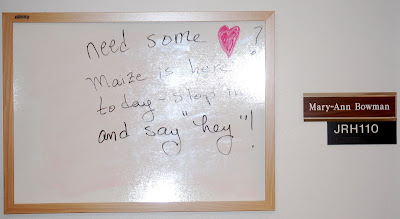 need some ♥?
Maize is here
today - stop in
and say "hey"!
Mary-Ann Bowman
JRH110